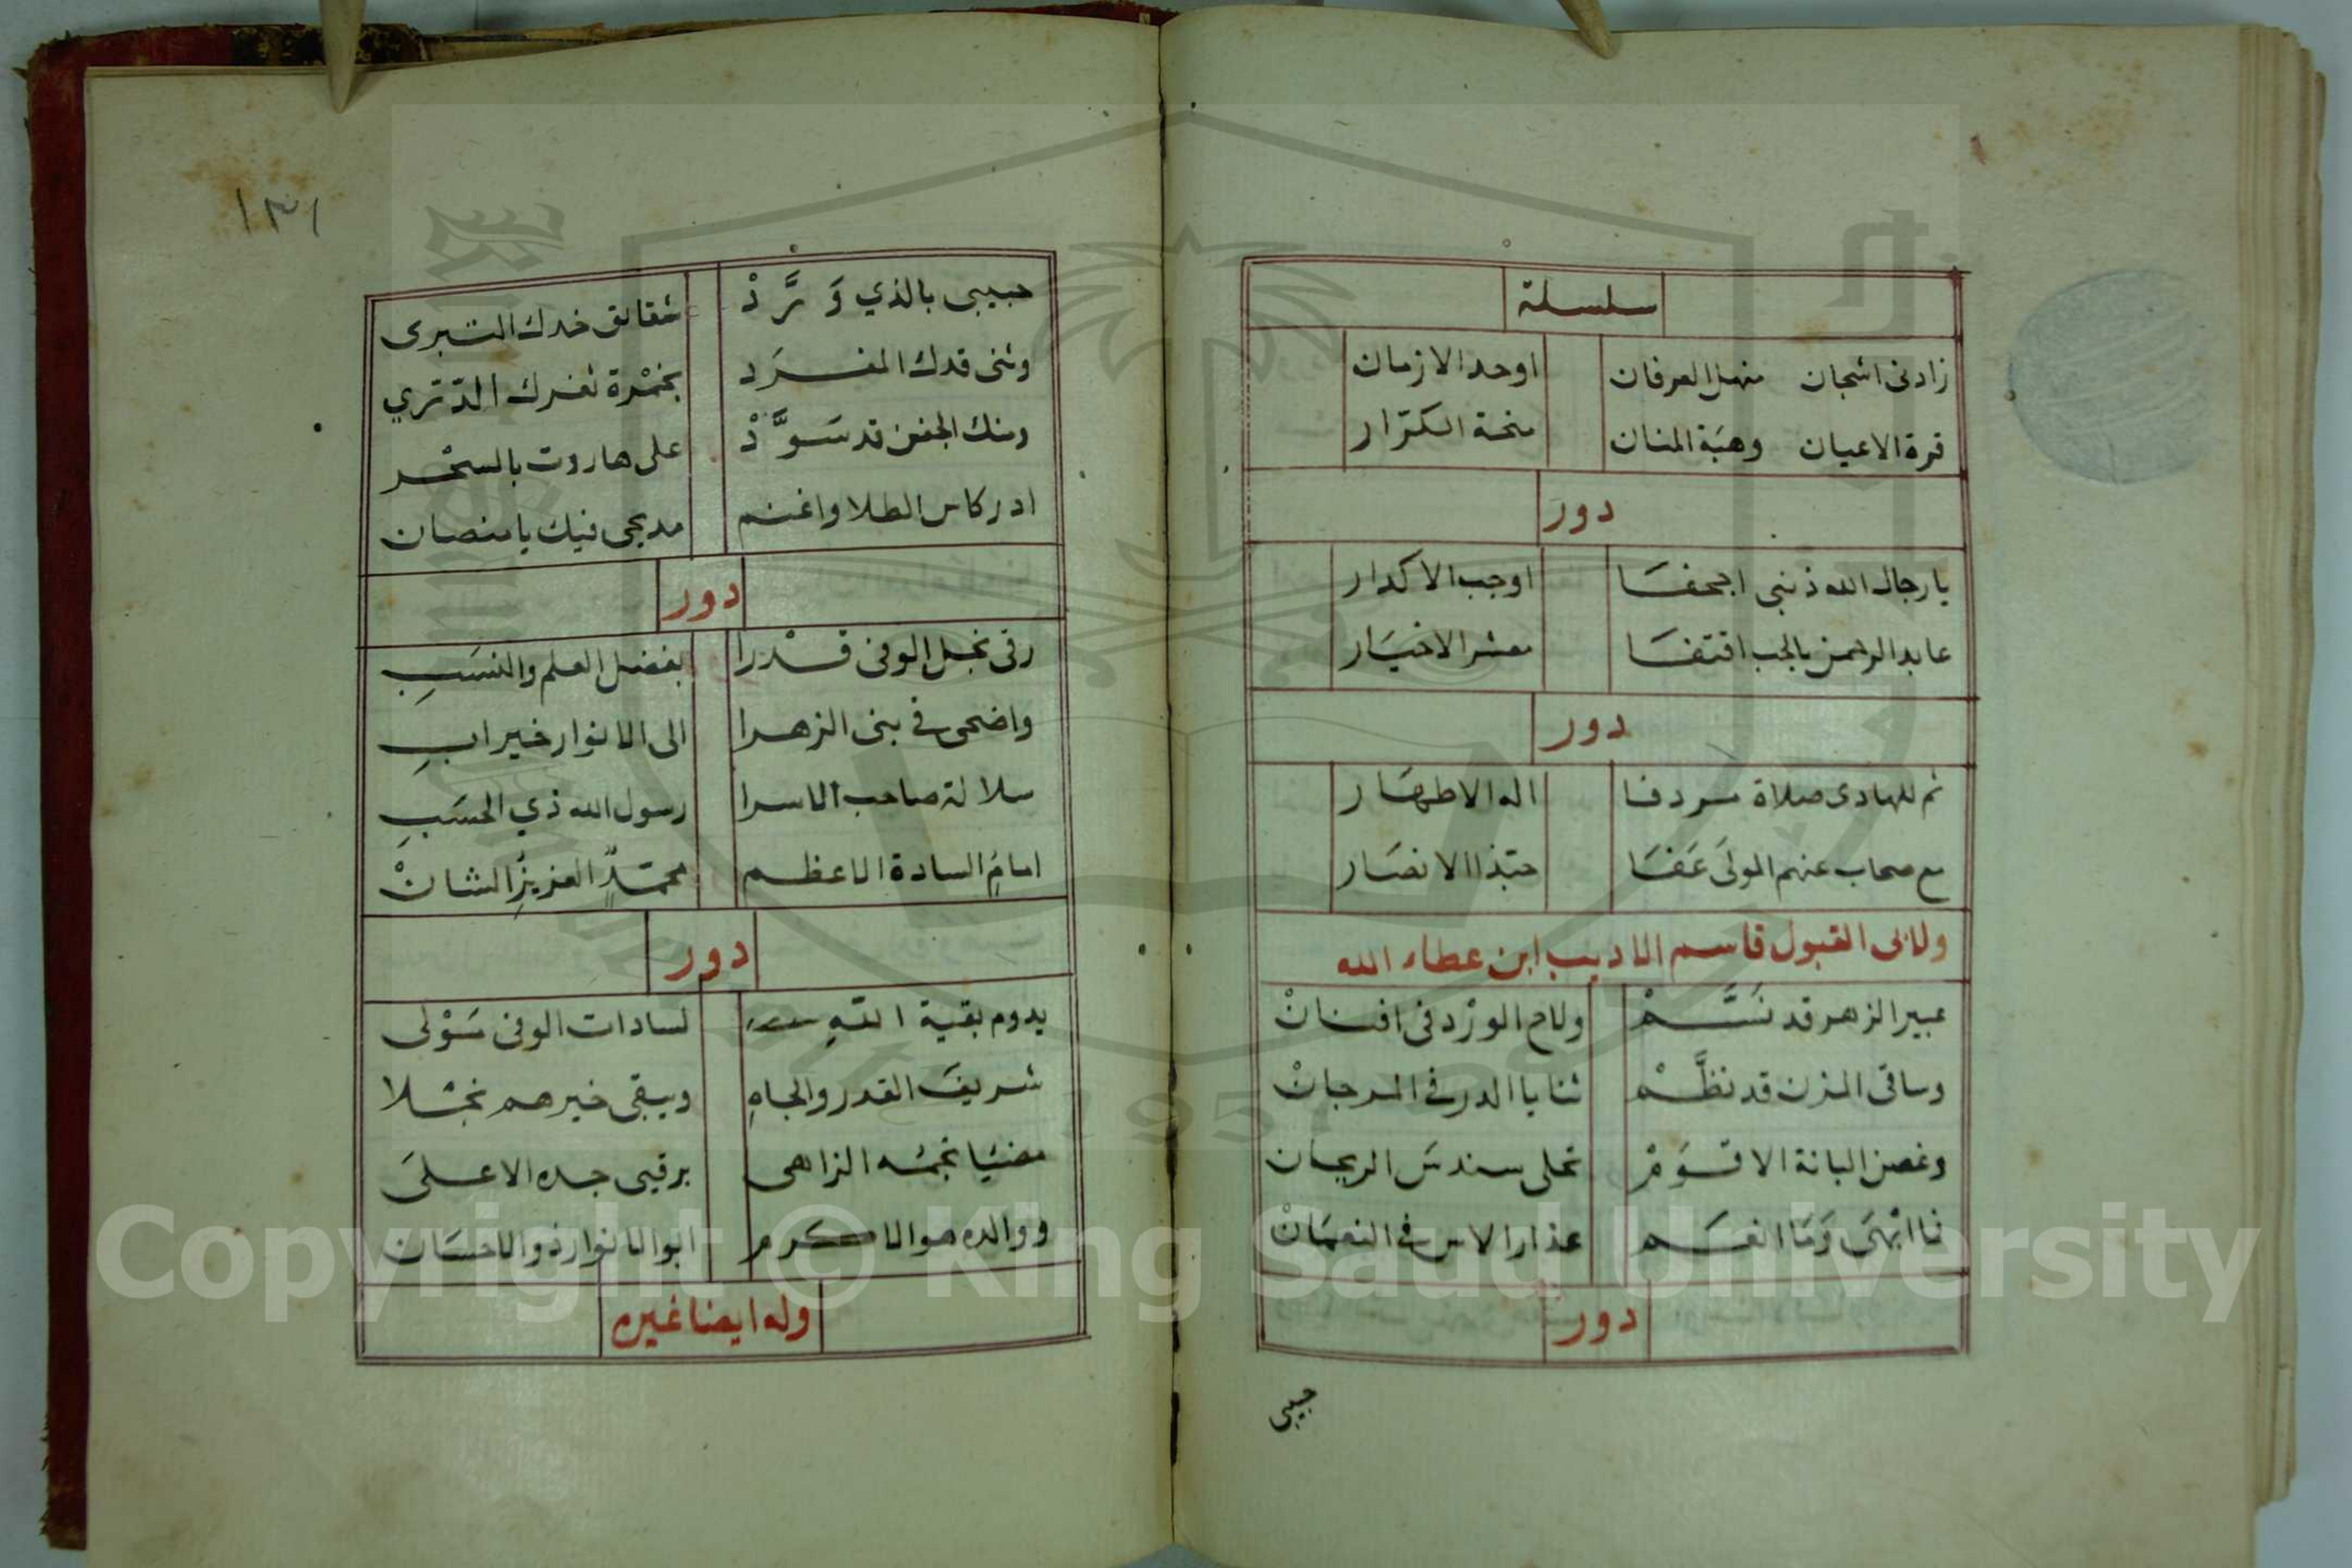 سلسلة
زادنى اشجان منهل العرفان اوحد الازمان
قرة الاعيان وهبَة المنان منحة الكرّار
دور
يا رجال الله ذنبى اجحفسَا اوجب الاكدار
عابد الرحمن بالحب اقتفسَا معشر الاخيَار
دور
ثم للهادى صلاة سردفا اله الاطهَار
مع صحاب عنهم المولَى عَفَا حبّذا الانصَار
ولابى القبول قاسم الاديب ابن عطاء الله
عبير الزهر قد نسَّمْ ولاح الورْد فى افنانْ
وساقى المزن قد نظَّمْ ثنايا الدر فى المرجانْ
وغصن البانة الاقوَمْ تحلى سندسَ الريحان
فما ابْهَى وَمَا انعَم عذار الاس فى النعمَانْ
دور
حبيبى
١٣١
حبيبى بالذي وَرَّدْ شقائق خدك التبرى
وثنى قدك المفرَد بخمْرة ثغرك الدّرّي
ومنك الجفن قد سَوَّدْ على هاروت بالسحْر
ادر كاس الطلا واغنم مديحى فيك يا منصان
دور
رقى نجل الوفى قدْرا بفضل العلم والنسَبِ
واضحى فى بنى الزهرا الى الانوار خير ابِ
سلالة صاحب الاسرا رسول الله ذي الحسَبِ
امامُ السادة الاعظم محمّدٍ العزيزُ الشانْ
دور
يدوم بقية اللهِ لسادات الوفى سَوْلى
شريفَ القدر والجاهِ ويبقى خيرهم نجْلا
مضيَا نجمُه الزاهى برقيى جده الاعلىَ
ووالده هو الاكرم ابو الانوار ذو الاحسَان
وله ايضا غيره
Copyright © King Saud University
1957